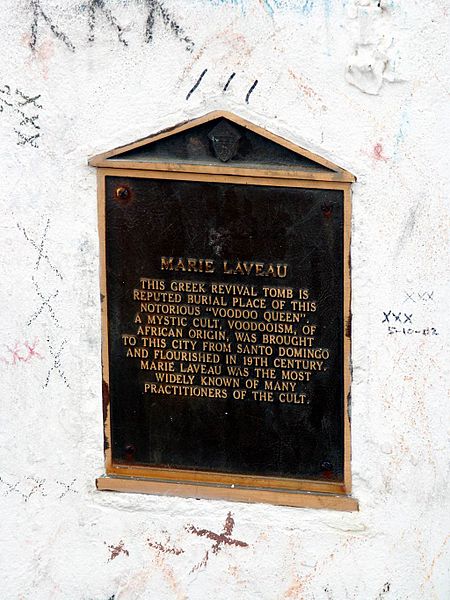 XXX
XXX
5-10-02
MARIE LAVEAU
THIS GREEK REVIVAL TOMB IS
REPUTED BURIAL PLACE OF THIS
NOTORIOUS "VOODOO QUEEN".
A MYSTIC CULT, VOODOOISM, OF
AFRICAN ORIGIN, WAS BROUGHT
TO THIS CITY FROM SANTO DOMINGO
AND FLOURISHED IN 19TH CENTURY.
MARIE LAVEAU WAS THE MOST
WIDELY KNOWN OF MANY
PRACTITIONERS OF THE CULT.